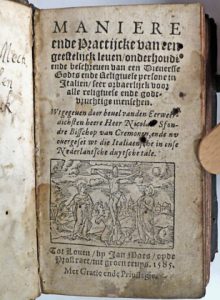 MANIERE
ende Practijcke van een
geestelijck leven / onderhoudē
ende beschreven van een Dienersse
Godts ende Religiuese persone in
Italien / seer oorbaerlijck voor
alle religiuese ende godt-
vruchtige menschen.
Wtgegeven door bevel van den Eerweer
dichsten heere Heer Nicolaus Sfon-
dre Bisschop van Cremonen, ende nv
overgeset wt die Italiaensche in onse
Nederlantsche duytsche tale.
Tot Loven / by Jan Maes / op de
Prostrate, int groen cruys. 1585.
Met Gratie ende Privilegie.